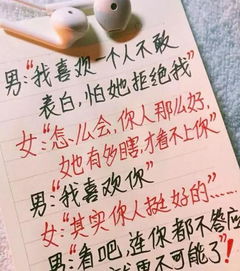 男:“我喜欢一个人不敢
表白,怕她拒绝我”
女:“怎么会,你人那么好,
她有多瞎,才看不上你”
男:“我喜欢你”
女:“其实你人挺好的……
男:“看吧,连你都不答应
更不可能了”!